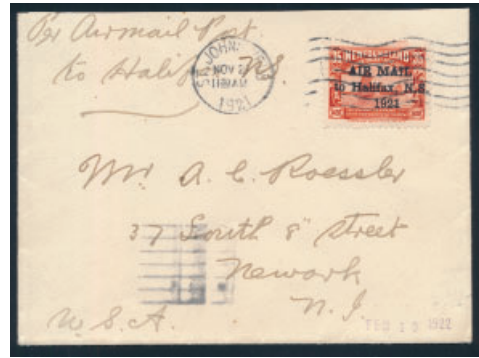 Per Airmail Post
to Halifax, N.S.
ST. JOHN'S
NOV 2
11 AM
1921
AIR MAIL
to Halifax, N.S.
1921
Mr. A. C. Roessler
37 South 8" street
Newark
N. J.
U.S.A.
FEB 10 1922